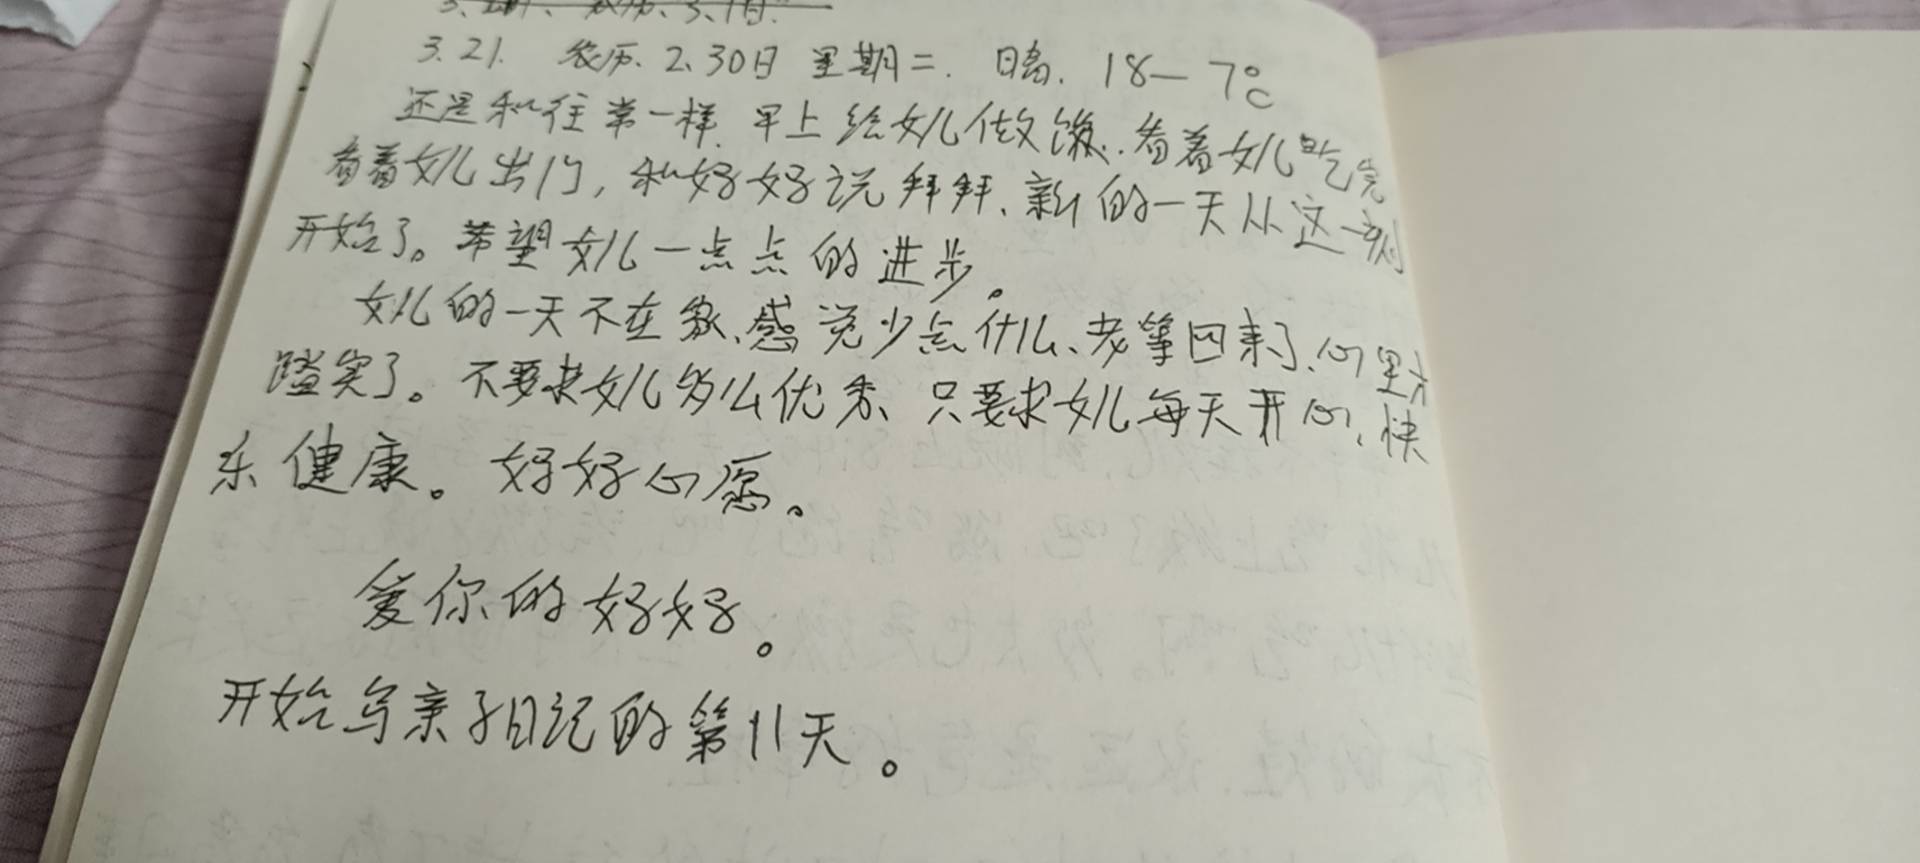 3.21. 农历.2.30日 星期二. 日离. 18—7℃
还是和往常一样.早上给女儿做饭..看着女儿吃完
看着女儿出门,和好好说拜拜、新的一天从这一刻
开始了。希望女儿一点点的进步。
女儿的一天不在家、感觉少点什么、老等回来了、心里才
踏实了。不要求女儿多么优秀、只要求女儿每天开心、快
乐健康。好好心愿。
爱你的好好。
开始写亲子日记的第11天。